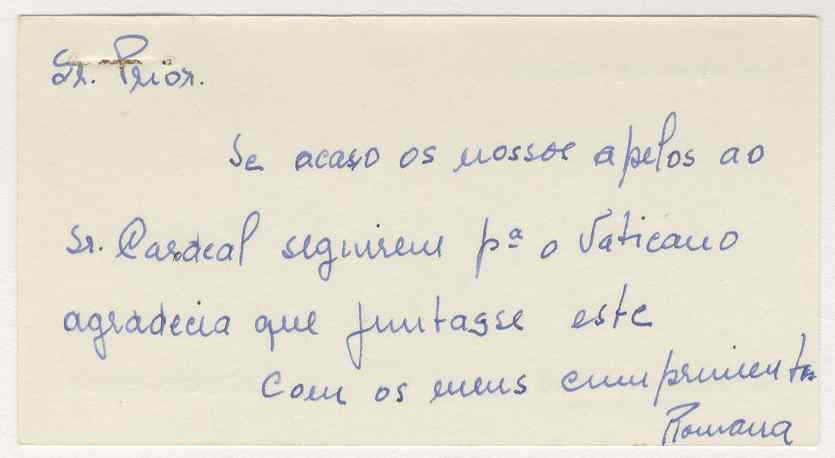 Sr. Prior.
Se acaso os nossos apelos ao
Sr. Cardeal seguirem pª o Vaticano
agradecia que juntasse este
Com os meus cumprimentos
Romana